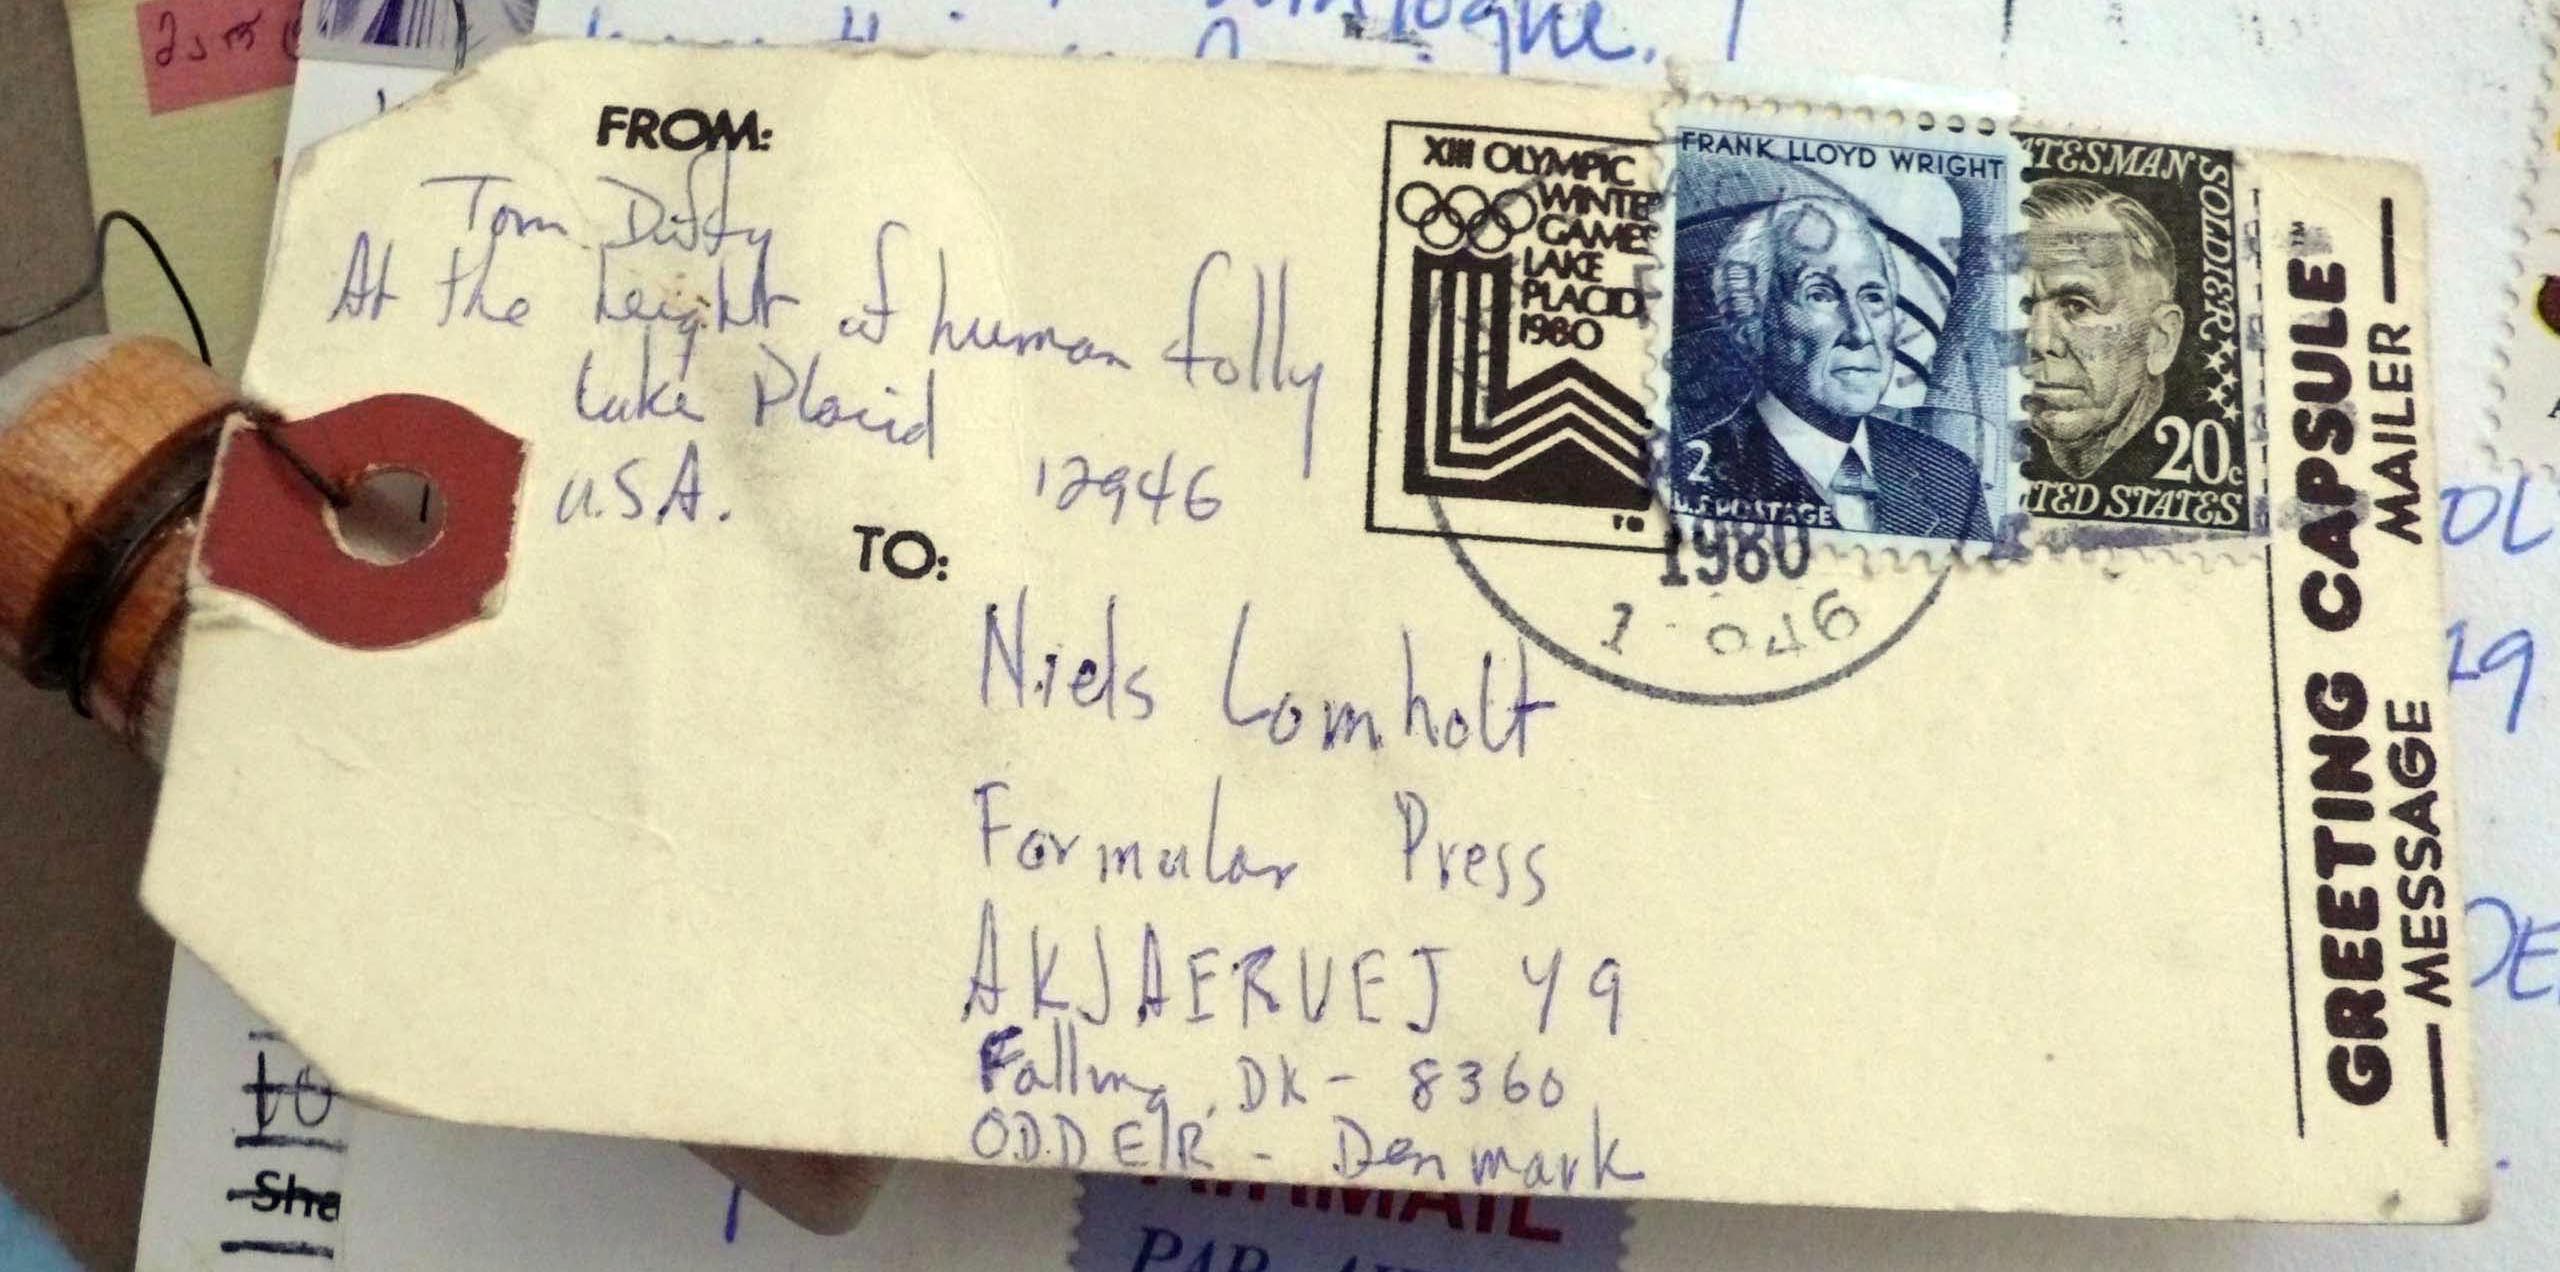 FROM:
Tom Duffy
At the height of human folly
Lake Placid
U.S.A. 12946
TO:
Niels Lomholt
Formular Press
AKJAERVEJ 49
Falling, DK- 8360
ODDER - Denmark
XIII OLYMPIC
WINTER
GAMES
LAKE
PLACID
1980
TM
FRANK LLOYD WRIGHT
2c
U.S. POSTAGE
ATESMAN SOLDIER
20c
TED STATES
1980
GREETING CAPSULE™
MESSAGE MAILER
to
She
AIRMAIL
PAR